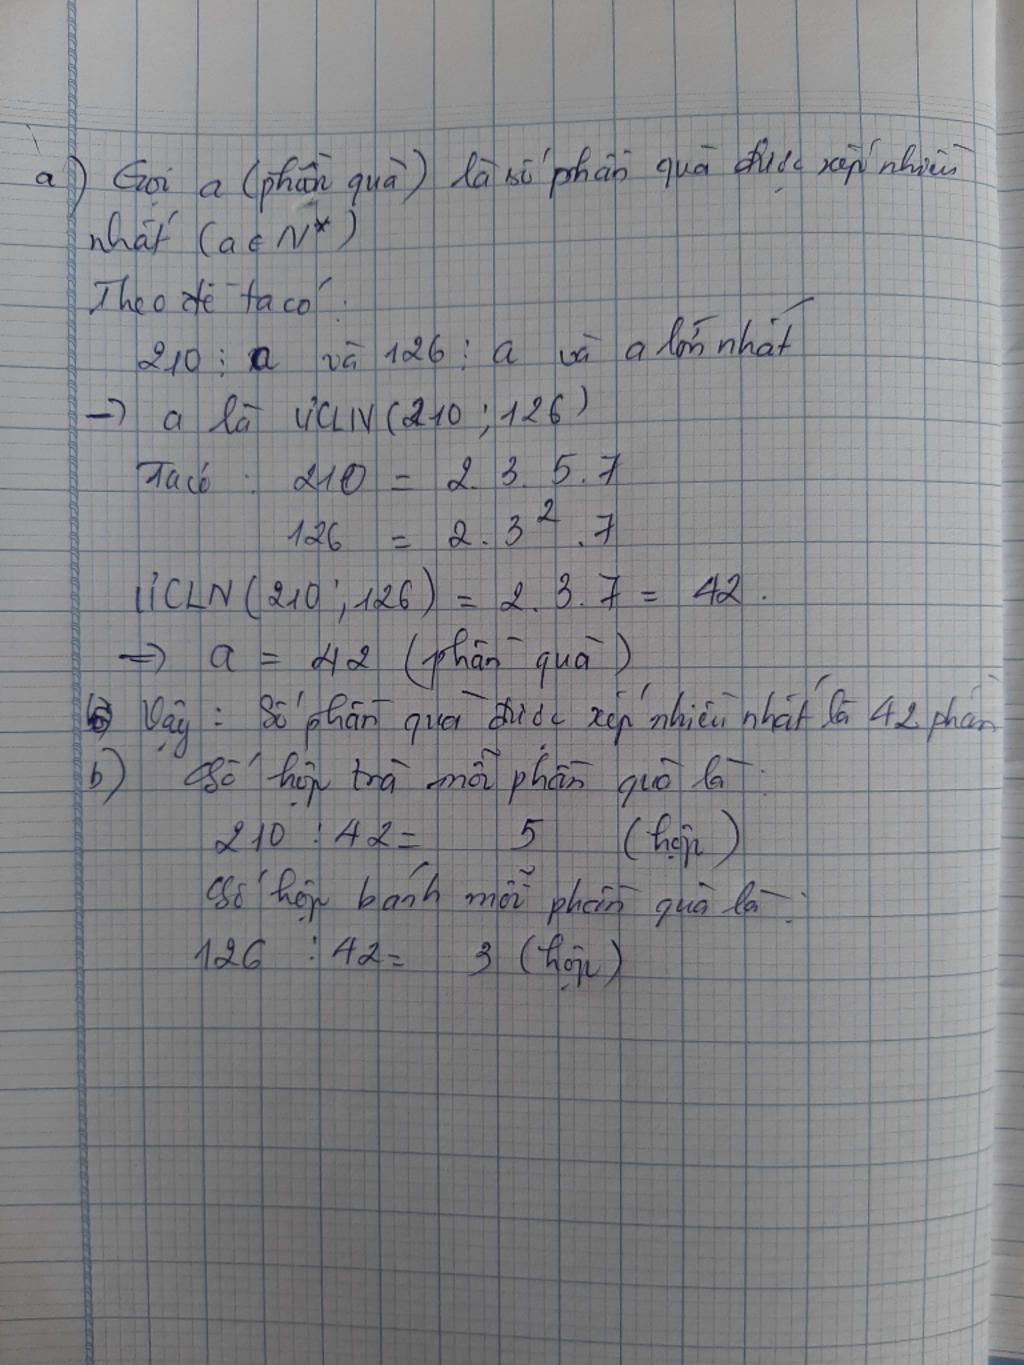 a) Gọi a (phần quà) là số phần quà được xếp nhiều
nhất (a ∈ N*)
Theo đề ta có :
210 ⋮ a và 126 ⋮ a và a lớn nhất
→ a là ƯCLN(210 ; 126)
Ta có : 210 = 2. 3. 5. 7
126 = 2. 3² . 7
ƯCLN(210 ; 126) = 2. 3. 7 = 42.
⇒ a = 42 (phần quà)
Vậy : Số phần quà được xếp nhiều nhất là 42 phần
b) Số hộp trà mỗi phần quà là :
210 : 42 = 5 (hộp)
Số hộp bánh mỗi phần quà là :
126 : 42 = 3 (hộp)